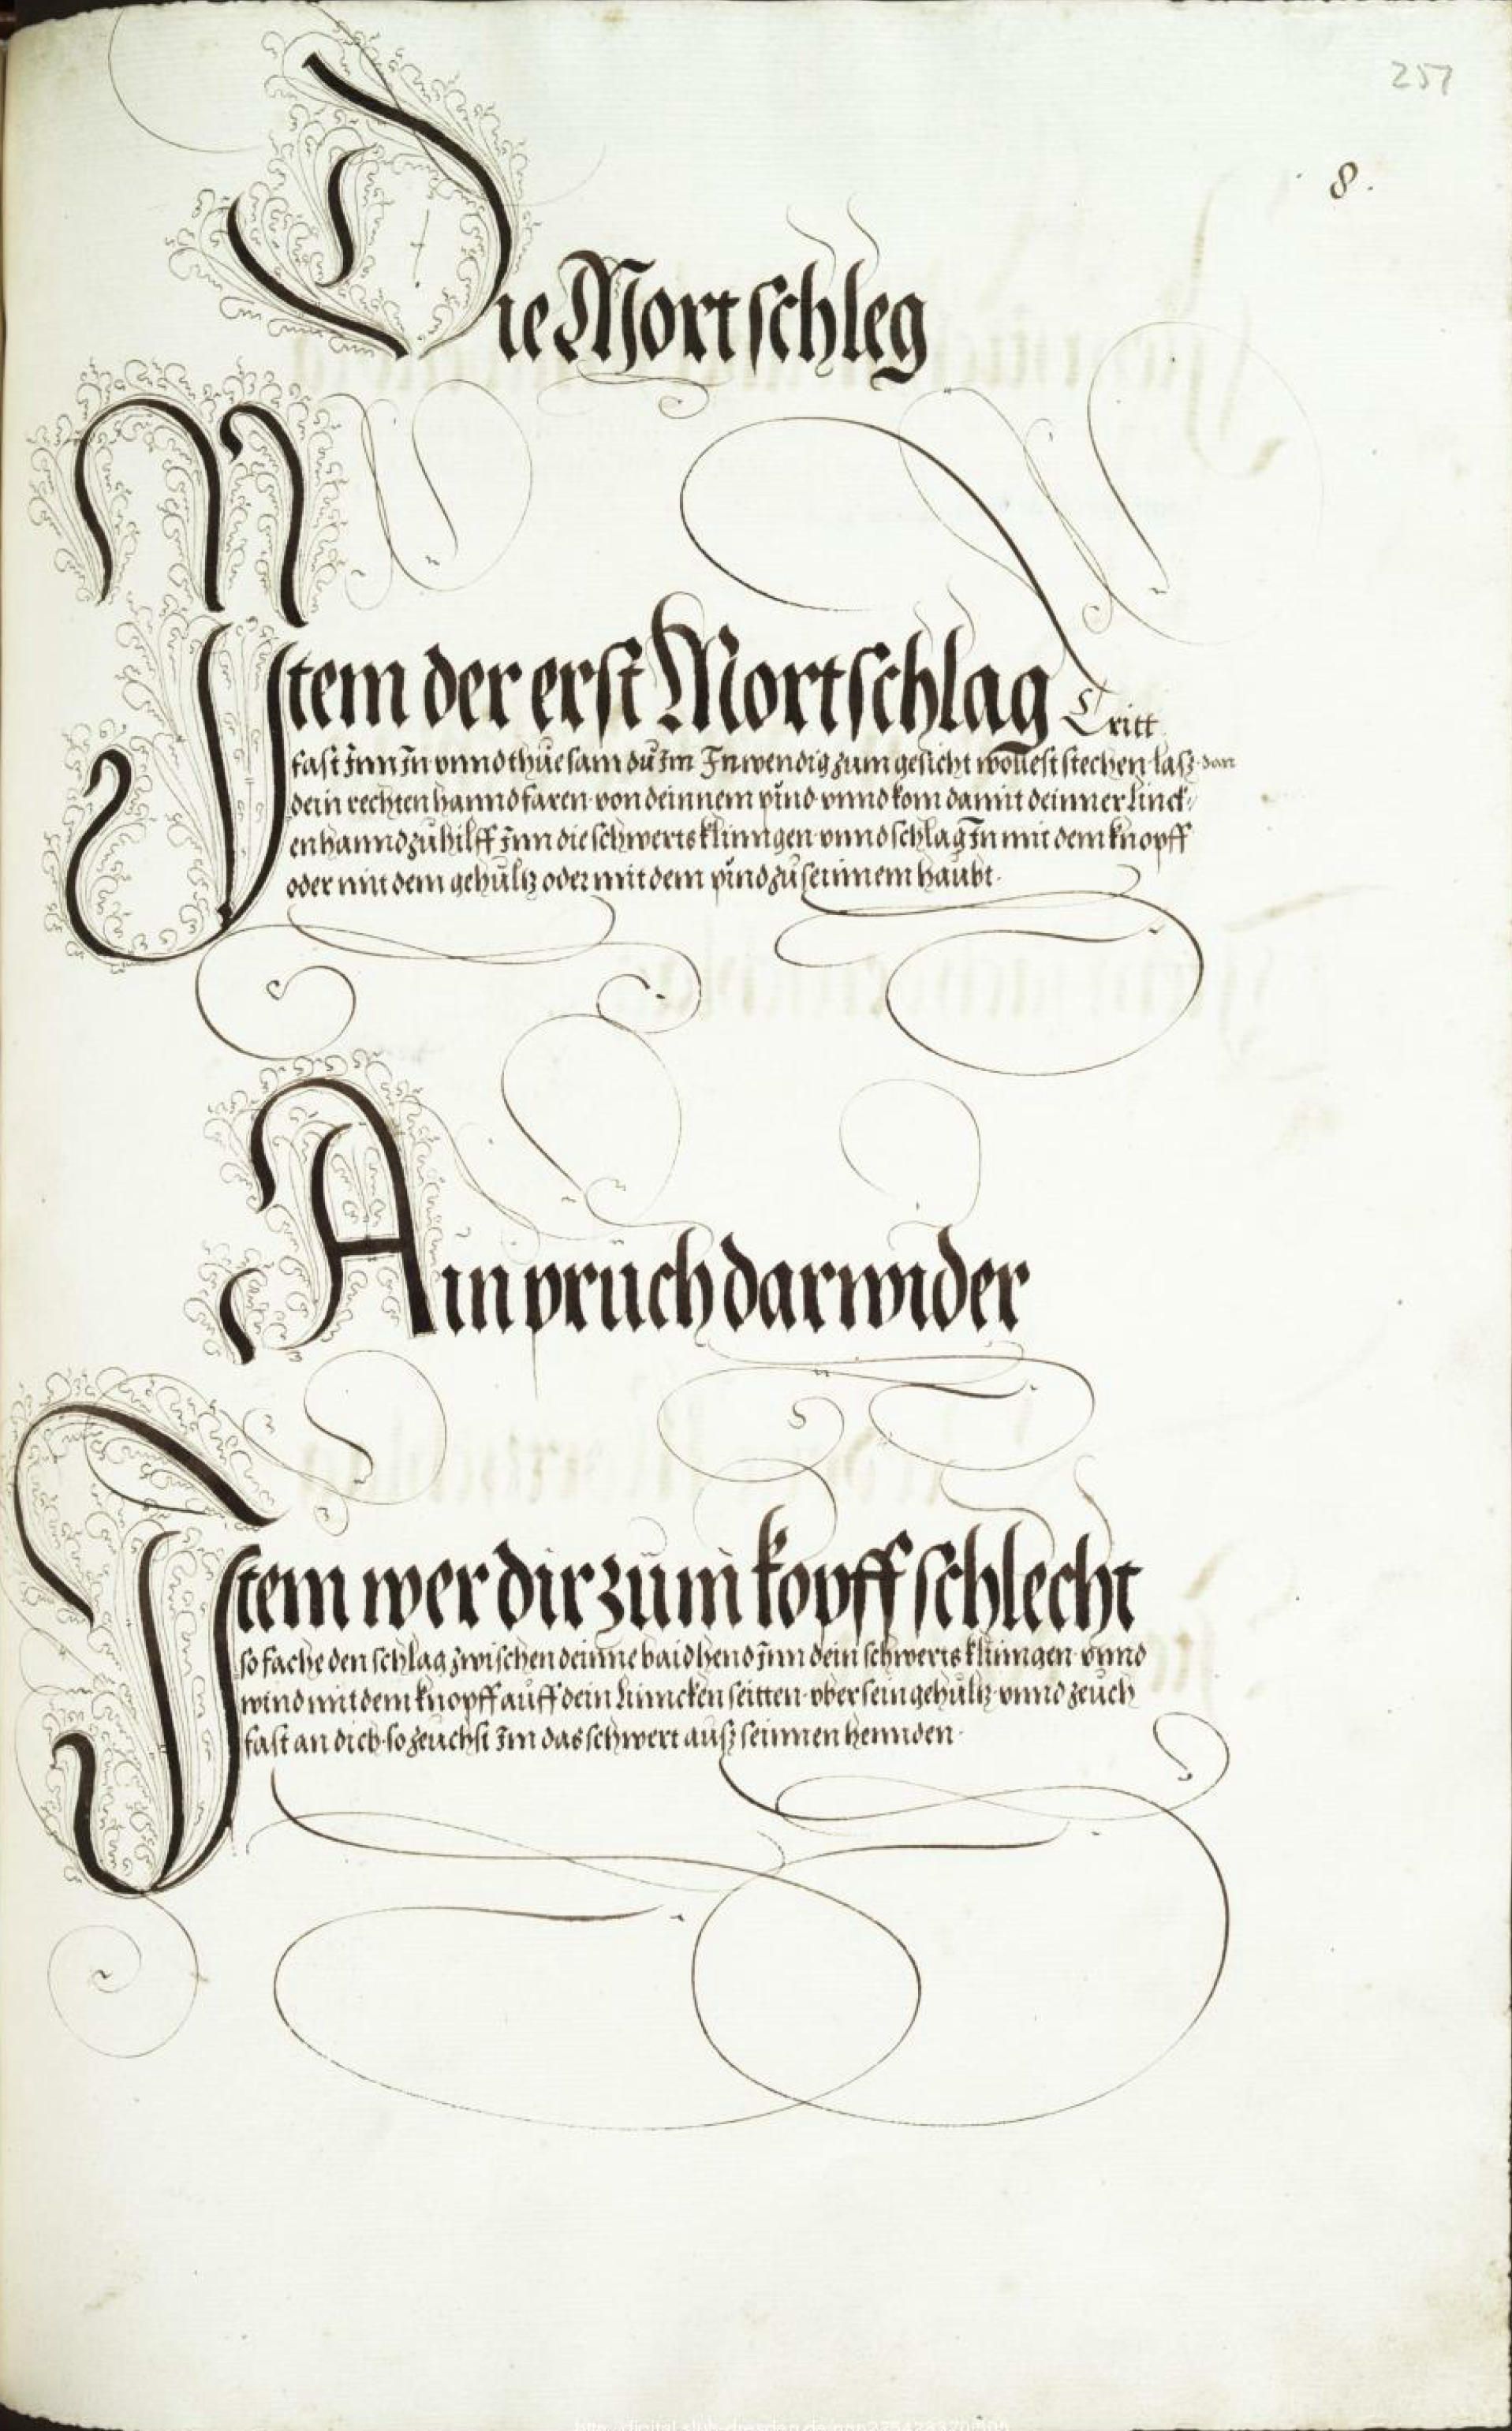 257
8.
Die Mortschleg
M
Item der erst Mortschlag Tritt
fast Inn In vnnd thue sam du Im Inwendig zum gesicht wöllest stechen · lasz · dan
dein rechten hannd faren · von deinnem pind · vnnd kom damit deinner linck/
en hannd zu hilff Inn die schwerts klinngen · vnnd schlag In mit dem knopff
oder mit dem gehültz oder mit dem pind zu seinnem haubt ·
Ain pruch darwider
Item wer dir zum kopff schlecht
so fache den schlag zwischen deinne baid hend Inn dein schwerts klinngen · vnnd
wind mit dem knopff auff dein linncken seitten · vber sein gehültz · vnnd zeuch
fast an dich · so zeuchst Im das schwert ausz seinnen hennden ·